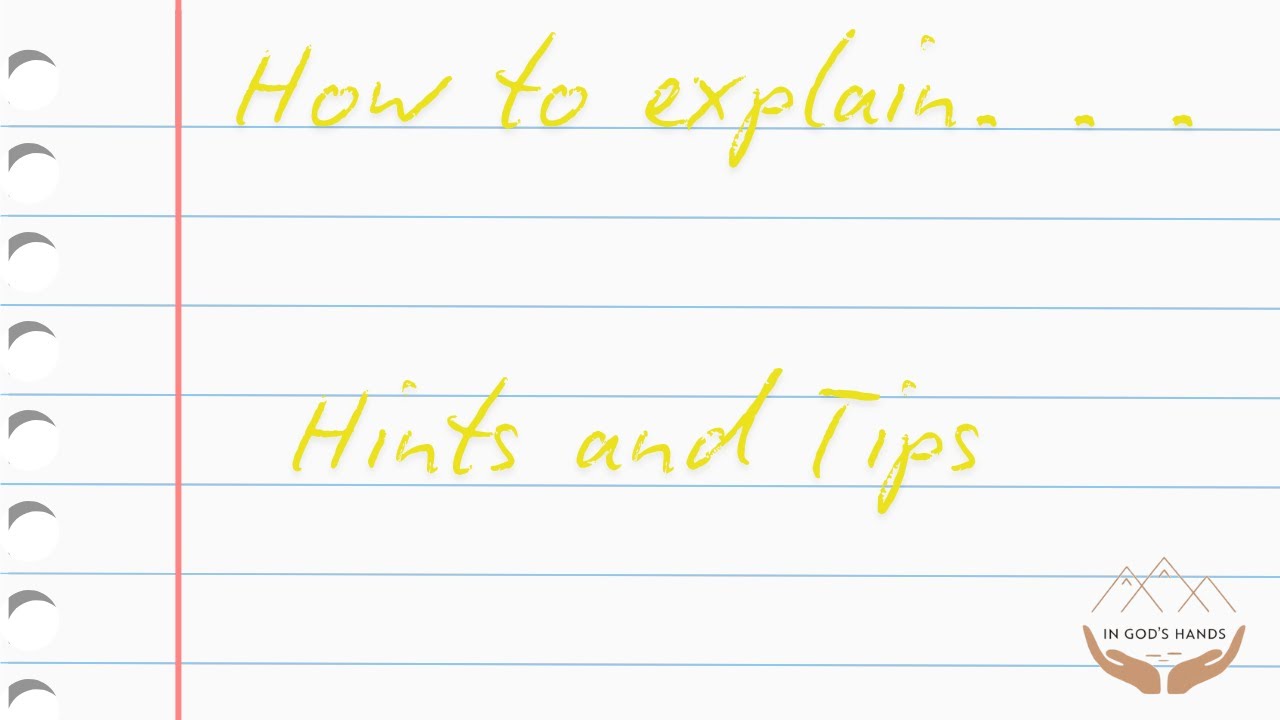 How to explain. . .
Hints and Tips
IN GOD'S HANDS